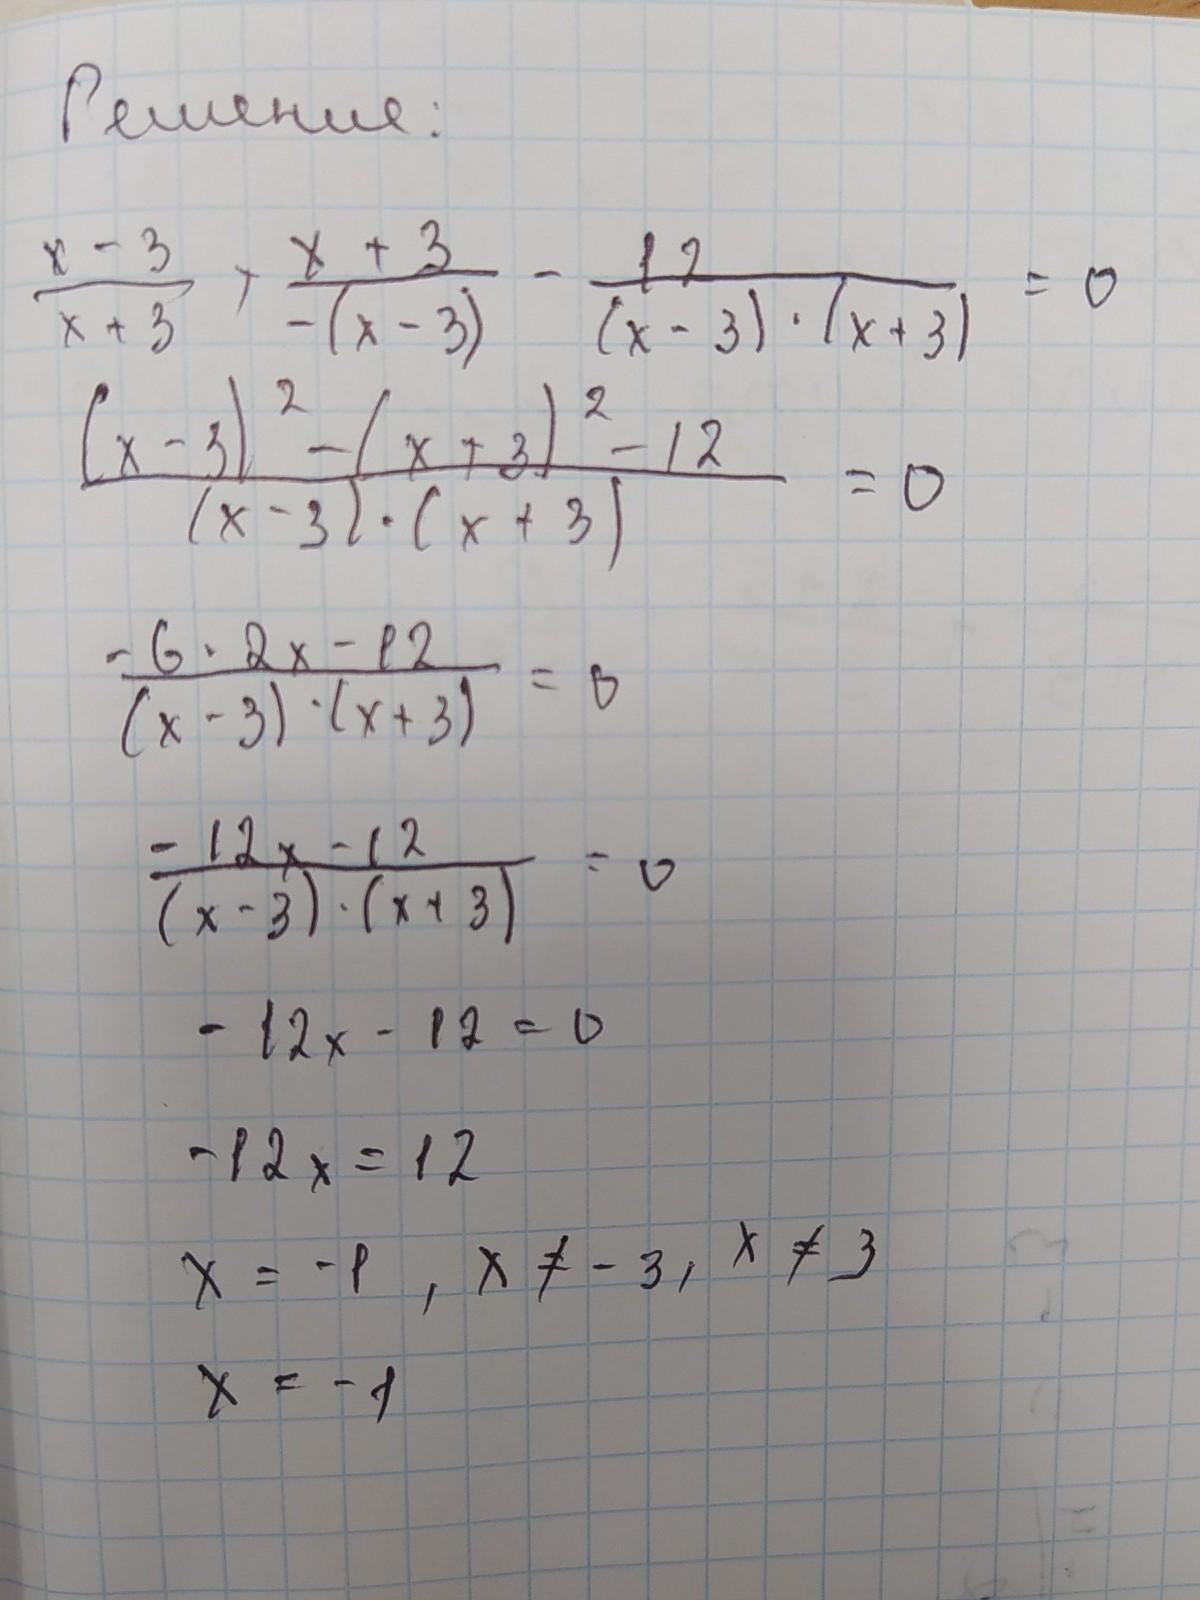 Решение:
x - 3 / x + 3 + x + 3 / -(x - 3) - 12 / (x - 3) · (x + 3) = 0
(x - 3)² - (x + 3)² - 12 / (x - 3) · (x + 3) = 0
-6 · 2x - 12 / (x - 3) · (x + 3) = 0
-12x - 12 / (x - 3) · (x + 3) = 0
-12x - 12 = 0
-12x = 12
x = -1, x ≠ -3, x ≠ 3
x = -1